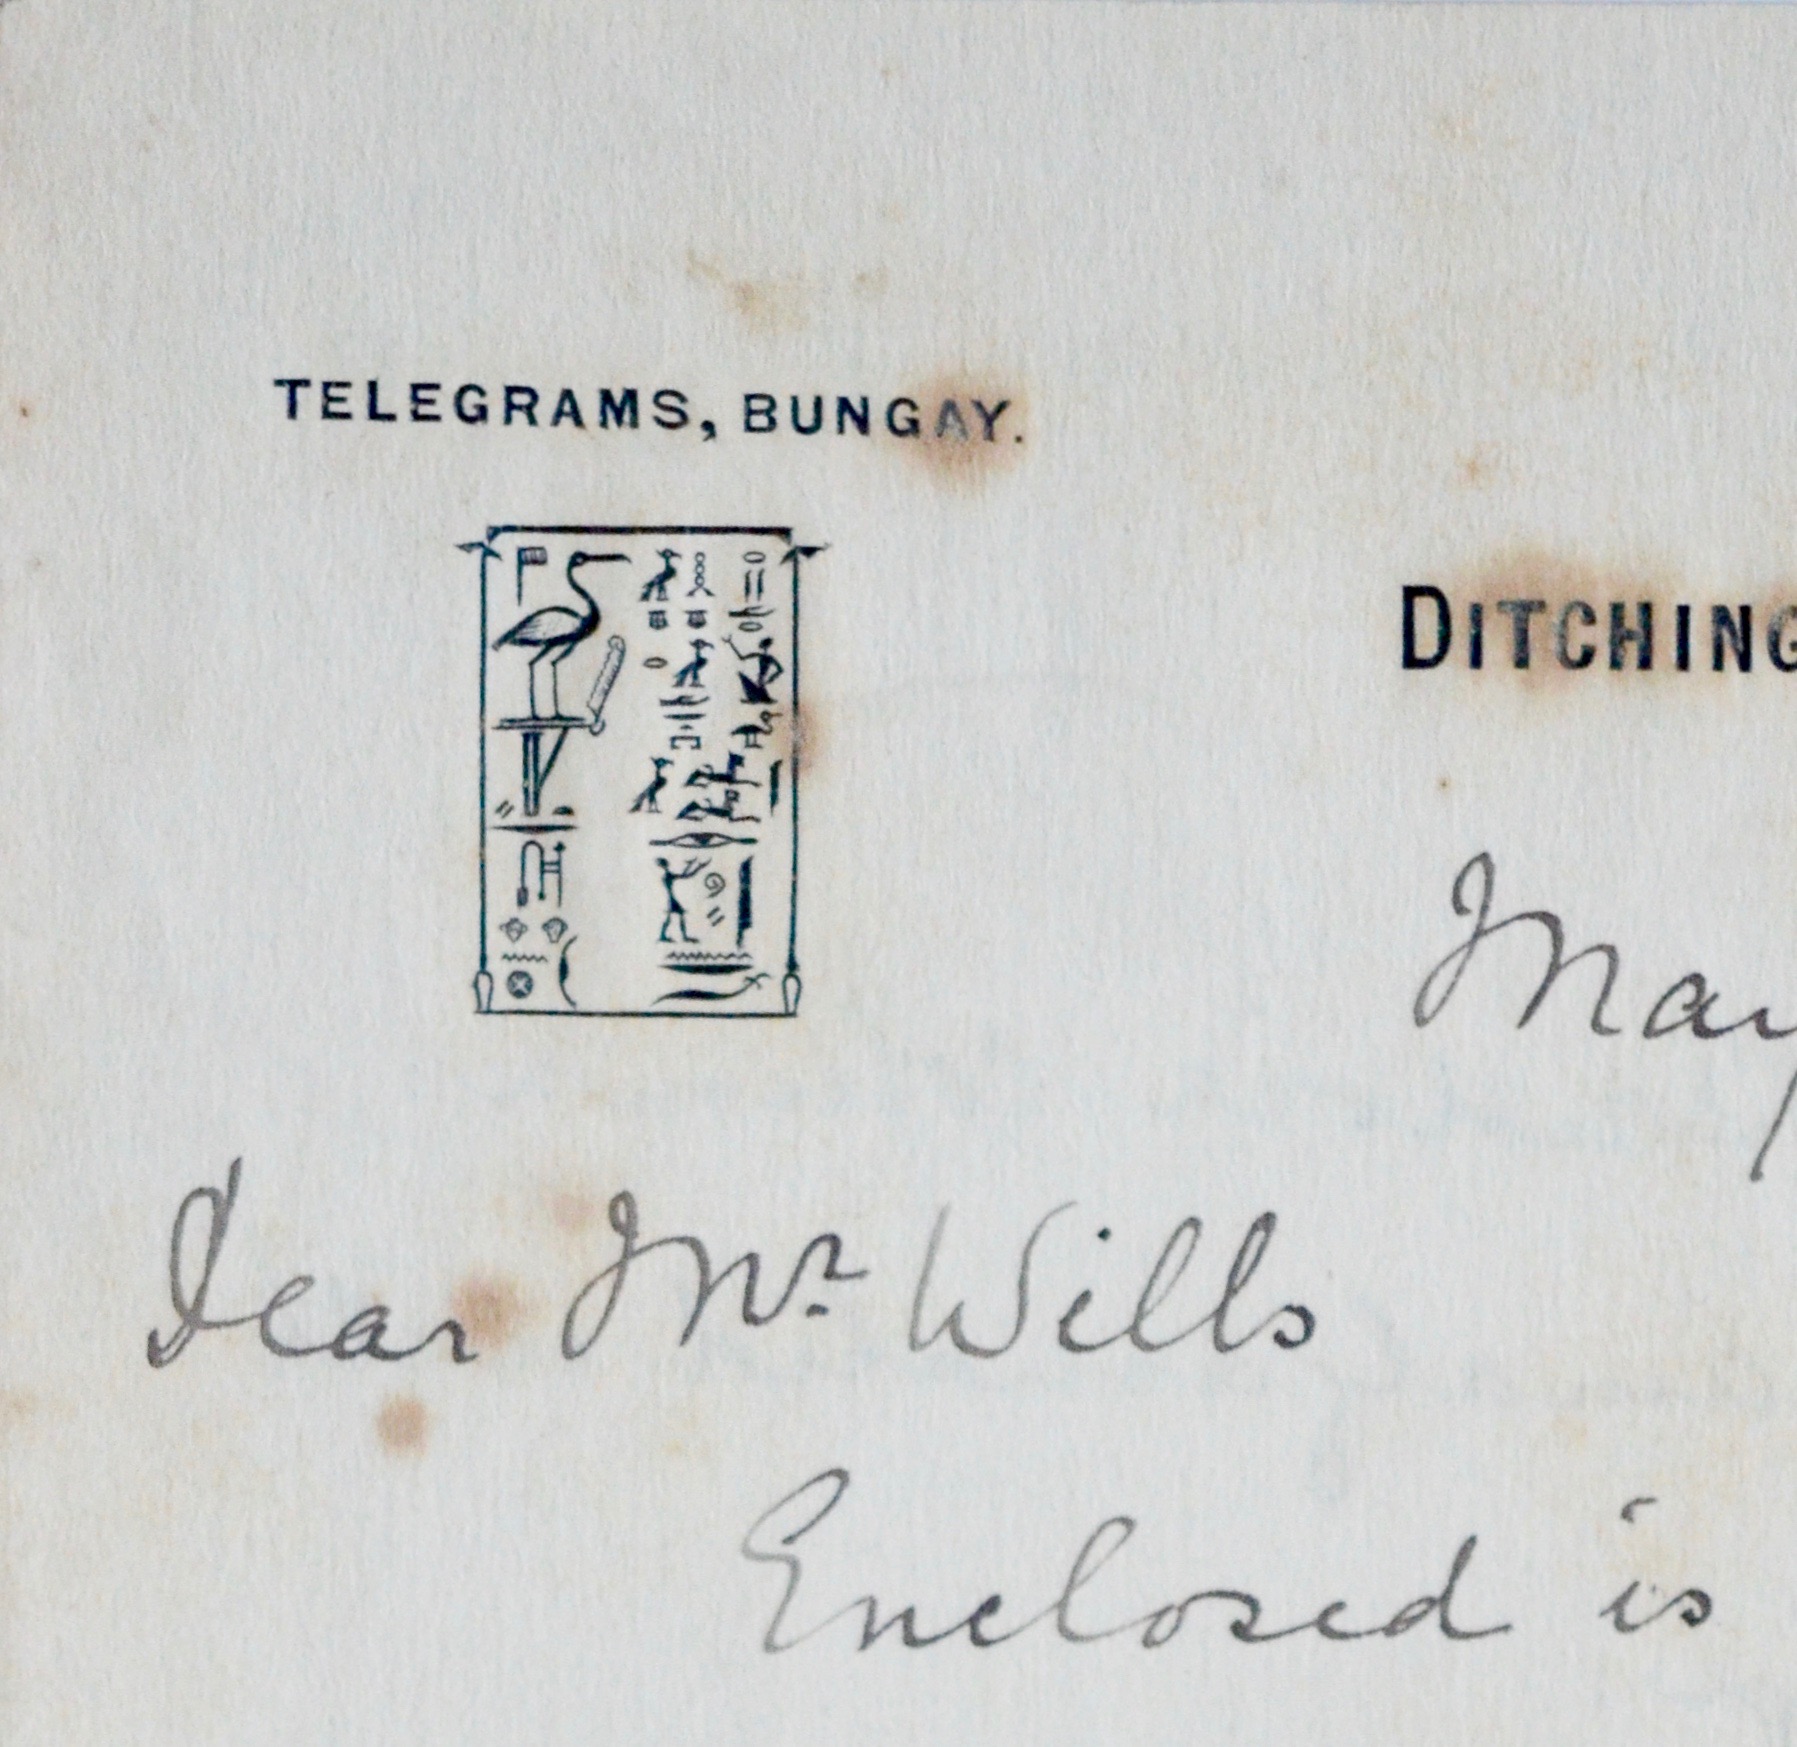 TELEGRAMS, BUNGAY.
DITCHING
May
Dear Mr. Wills
Enclosed is